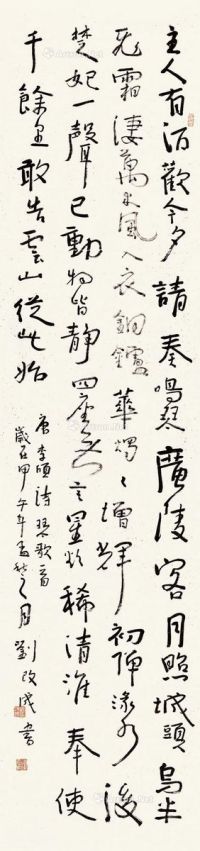 主人有酒歡今夕請奏鳴琴廣陵客月照城頭烏半
飛霜淒萬木風入衣銅鑪華燭〻增輝初彈渌水後
楚妃一聲已動物皆靜四座無言星欲稀清淮奉使
千餘里敢告雲山從此始
唐李頎詩琴歌一首
歲在甲午年孟秋之月劉書